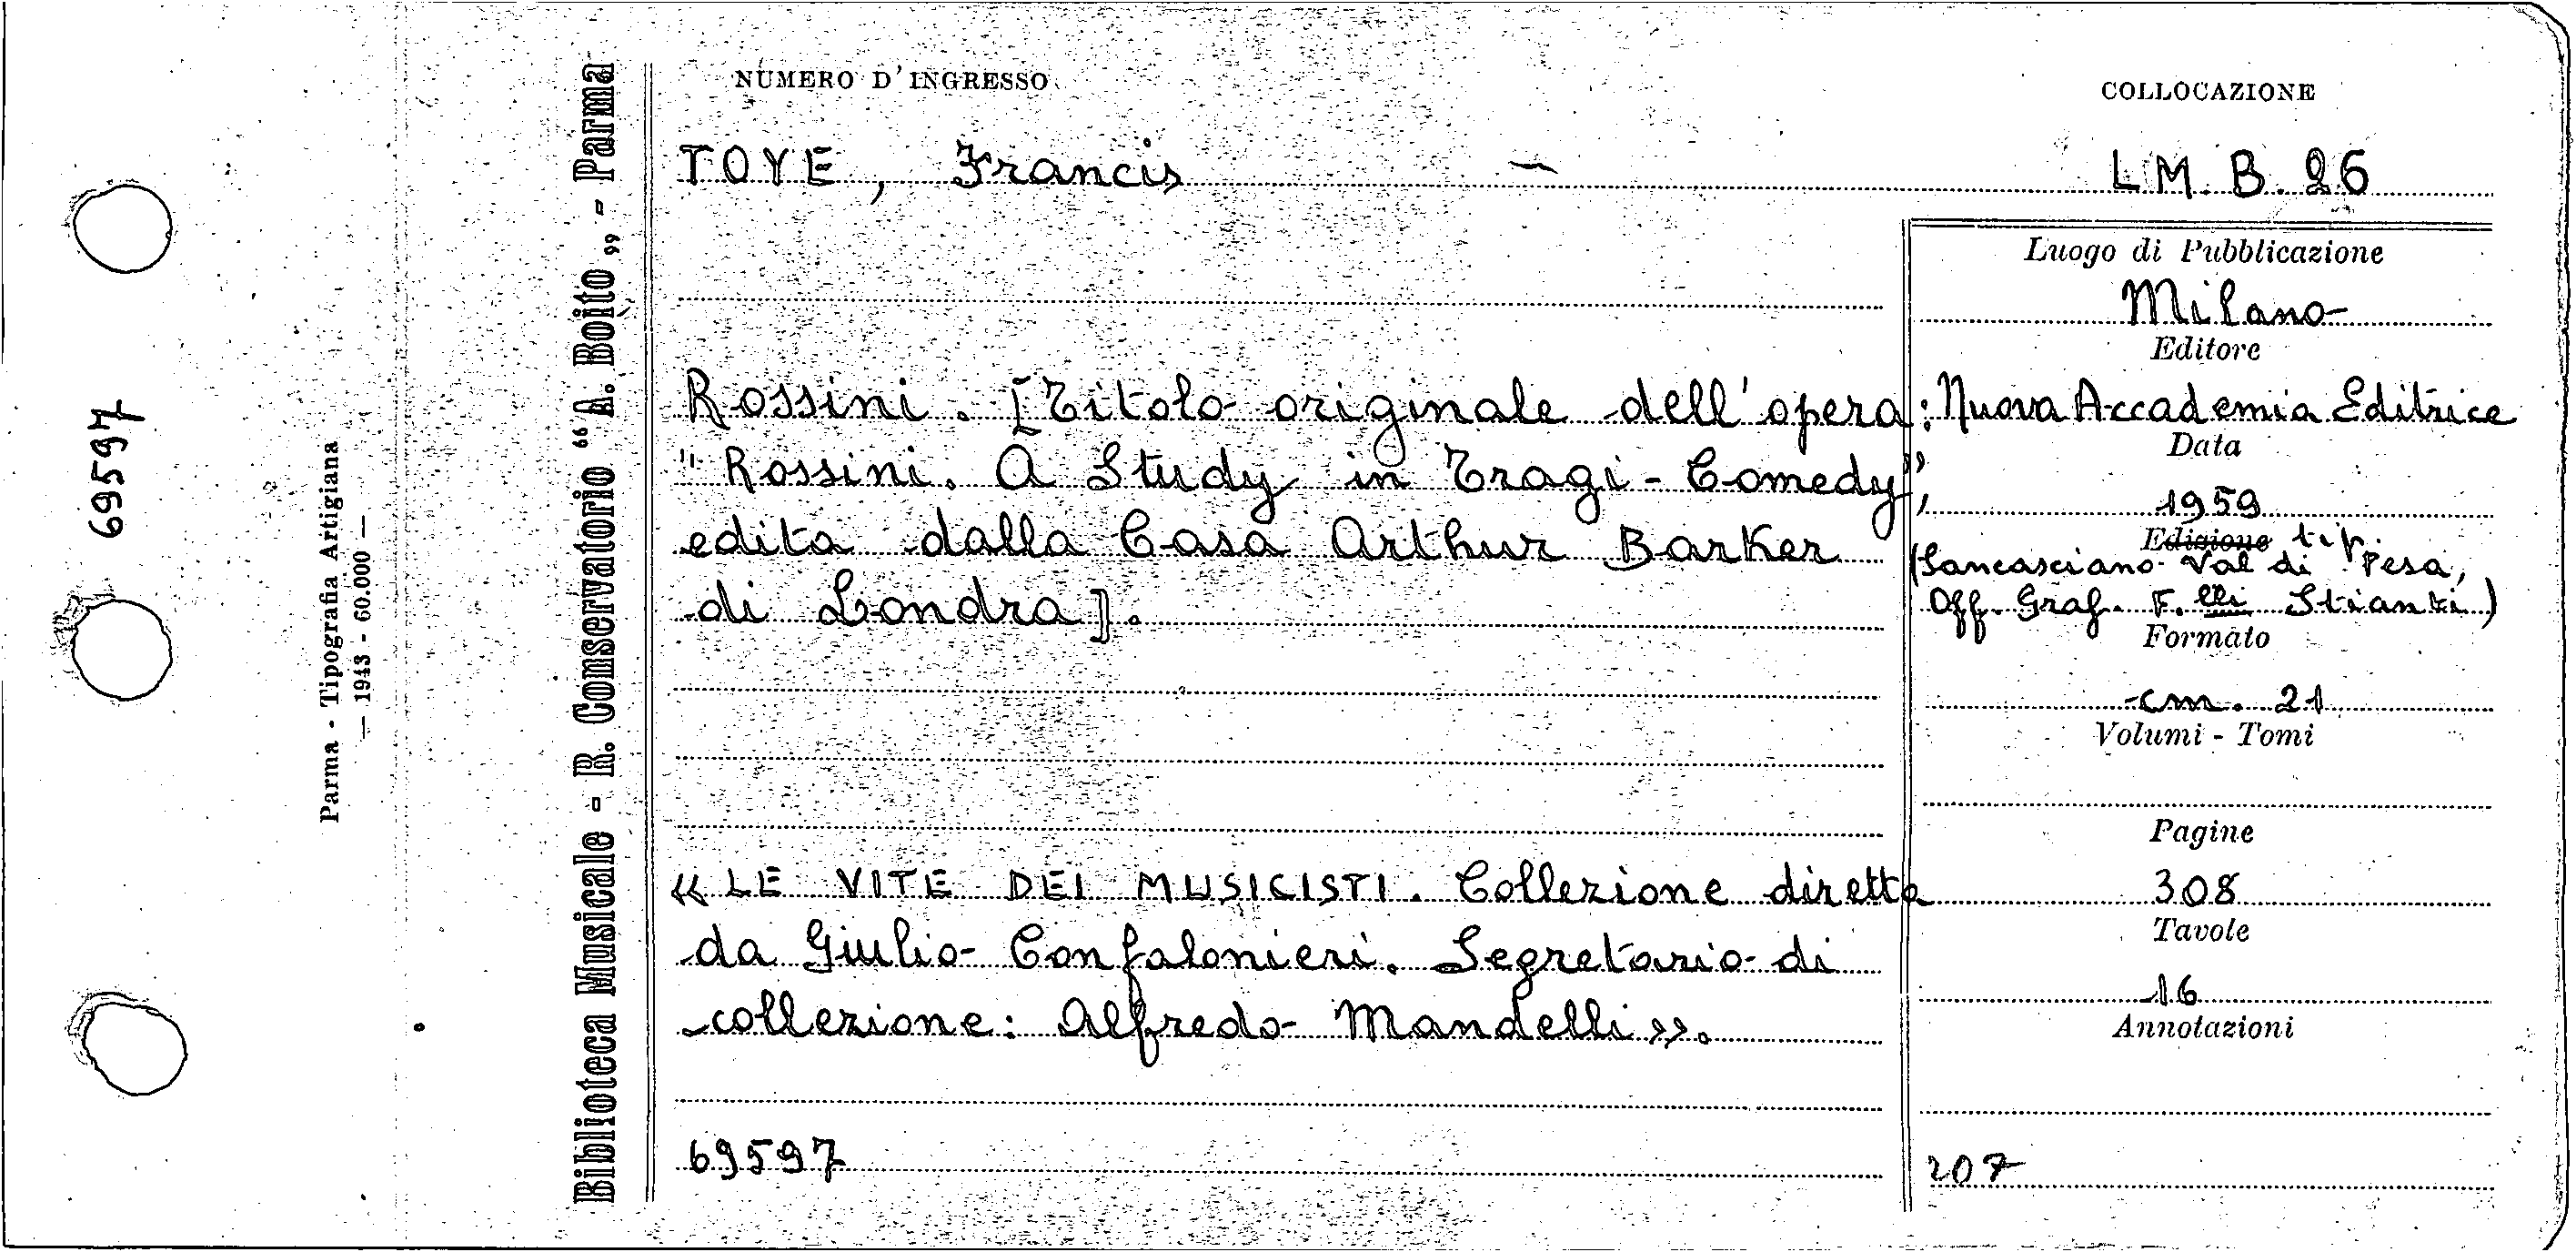 NUMERO D'INGRESSO
COLLOCAZIONE
TOYE, Francis —
L.M. B. 26
Luogo di Pubblicazione
Milano
Editore
Rossini. [Titolo originale dell'opera:
Nuova Accademia Editrice
Data
"Rossini. A Study in Tragi-Comedy",
1959
edita dalla Casa Arthur Barker
Edizione tip.
(Sancasciano Val di Pesa,
di Londra].
Off. Graf. F.lli Stianti)
Formato
cm. 21
Volumi - Tomi
Pagine
« LE VITE DEI MUSICISTI. Collezione diretta
308
Tavole
da Giulio Confalonieri. Segretario di
16
collezione: Alfredo Mandelli ».
Annotazioni
69597
207
Biblioteca Musicale - R. Conservatorio “A. Boito„ - Parma
Parma - Tipografia Artigiana
— 1943 - 60.000 —
69597